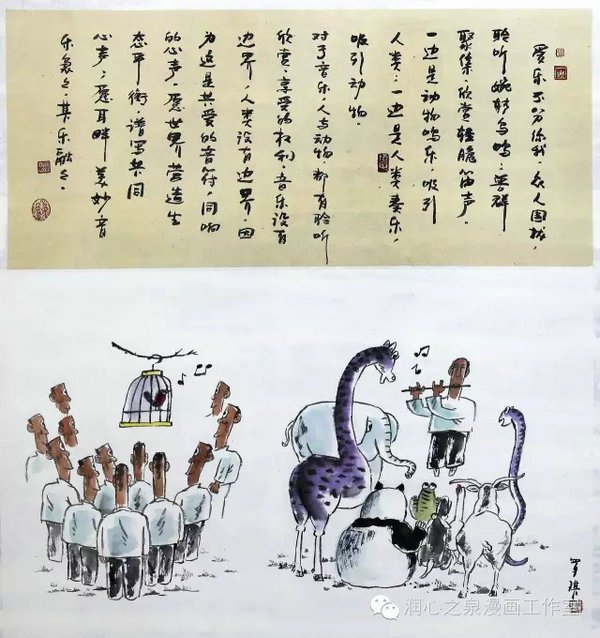 爱乐不分你我，众人围拢，
聆听婉转鸟鸣；兽群
聚集，欣赏轻脆笛声。
一边是动物鸣乐，吸引
人类；一边是人类奏乐，
吸引动物。
对于音乐，人与动物都有聆听
欣赏、享受的权利，音乐没有
边界，人类没有边界，因
为这是共爱的音符，同响
的心声，愿世界营造生
态平衡，谱写共同
心声；愿耳畔美妙音
乐袅袅，其乐融融。
润心之泉漫画工作室